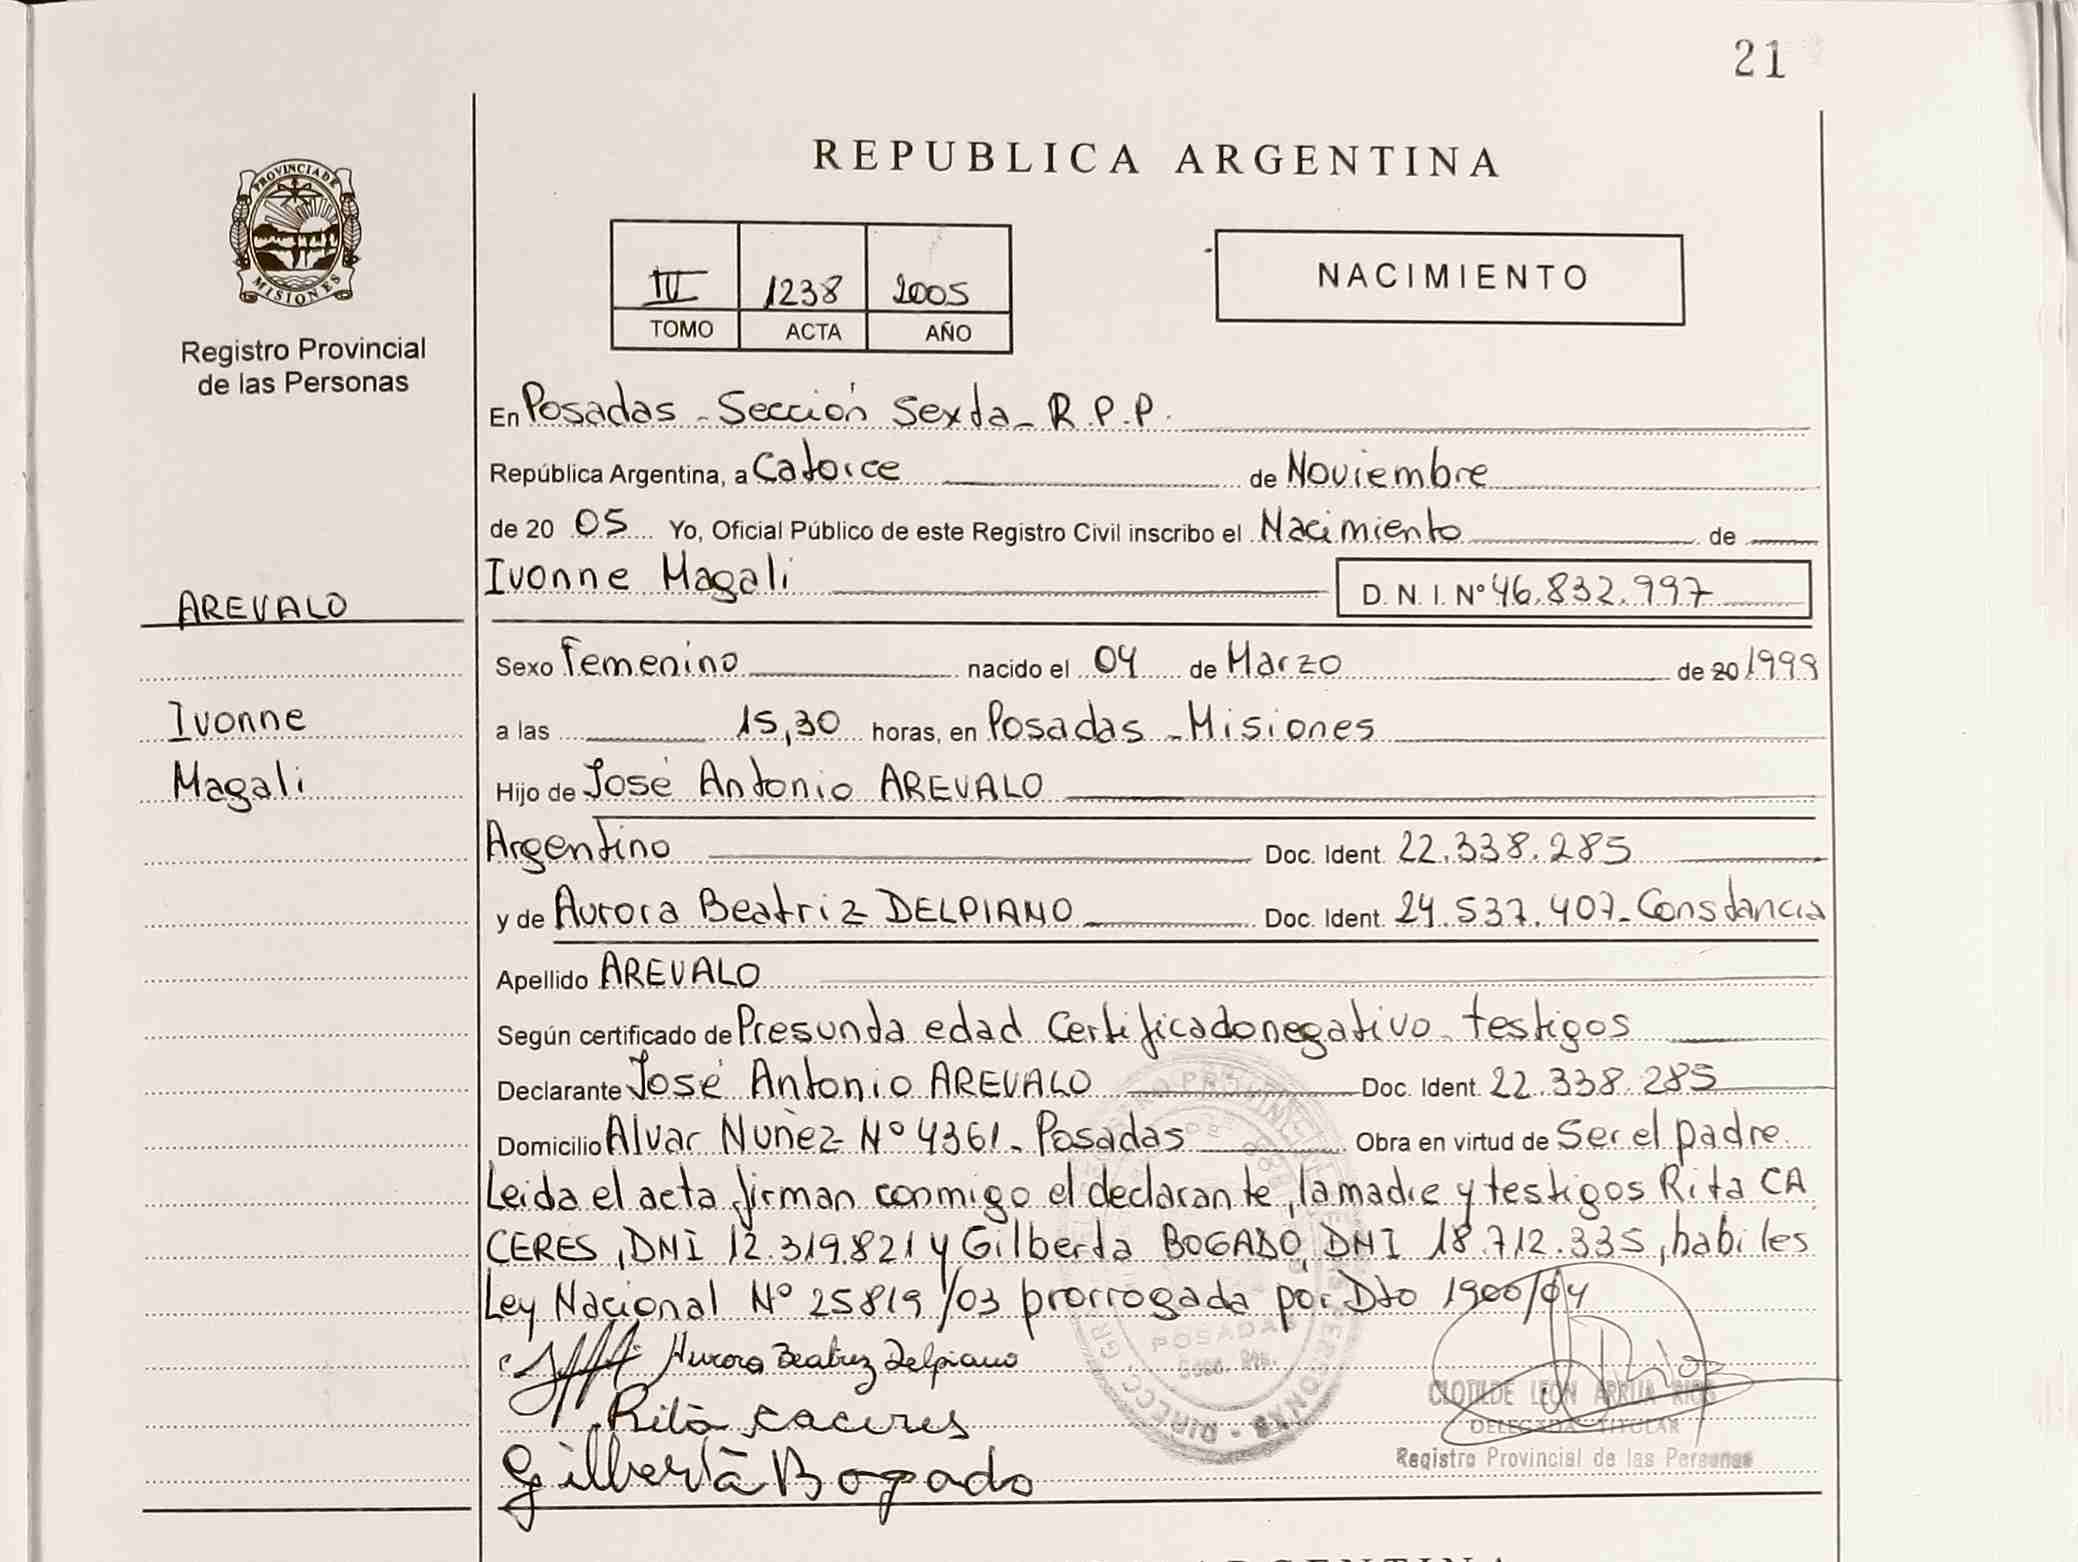 21
REPUBLICA ARGENTINA
PROVINCIA DE
MISIONES
Registro Provincial
de las Personas
IV 1238 2005
TOMO ACTA AÑO
NACIMIENTO
En Posadas - Sección Sexta - R.P.P.
República Argentina, a Catorce de Noviembre
de 20 05 Yo, Oficial Público de este Registro Civil inscribo el Nacimiento de
Ivonne Magali D. N. I. Nº 46.832.997
AREVALO
Ivonne
Magali
Sexo Femenino nacido el 04 de Marzo de 20 1999
a las 15,30 horas, en Posadas - Misiones
Hijo de José Antonio AREVALO
Argentino Doc. Ident. 22.338.285
y de Aurora Beatriz DELPIANO Doc. Ident. 24.537.407 - Constancia
Apellido AREVALO
Según certificado de Presunda edad Certificado negativo - testigos
Declarante José Antonio AREVALO Doc. Ident. 22.338.285
Domicilio Alvar Nuñez Nº 4361 - Posadas Obra en virtud de Ser el padre
Leida el acta firman conmigo el declarante, la madre y testigos Rita CA
CERES, DNI 12.319.821 y Gilberta BOGADO DNI 18.712.335, habiles
Ley Nacional Nº 25819/03 prorrogada por Dto 1900/04
Aurora Beatriz Delpiano
Rita Caceres
Gilberta Bogado
POSADAS
CLOTILDE LEON ARRUA RIOS
DELEGADA TITULAR
Registro Provincial de las Personas
ARGENTINA